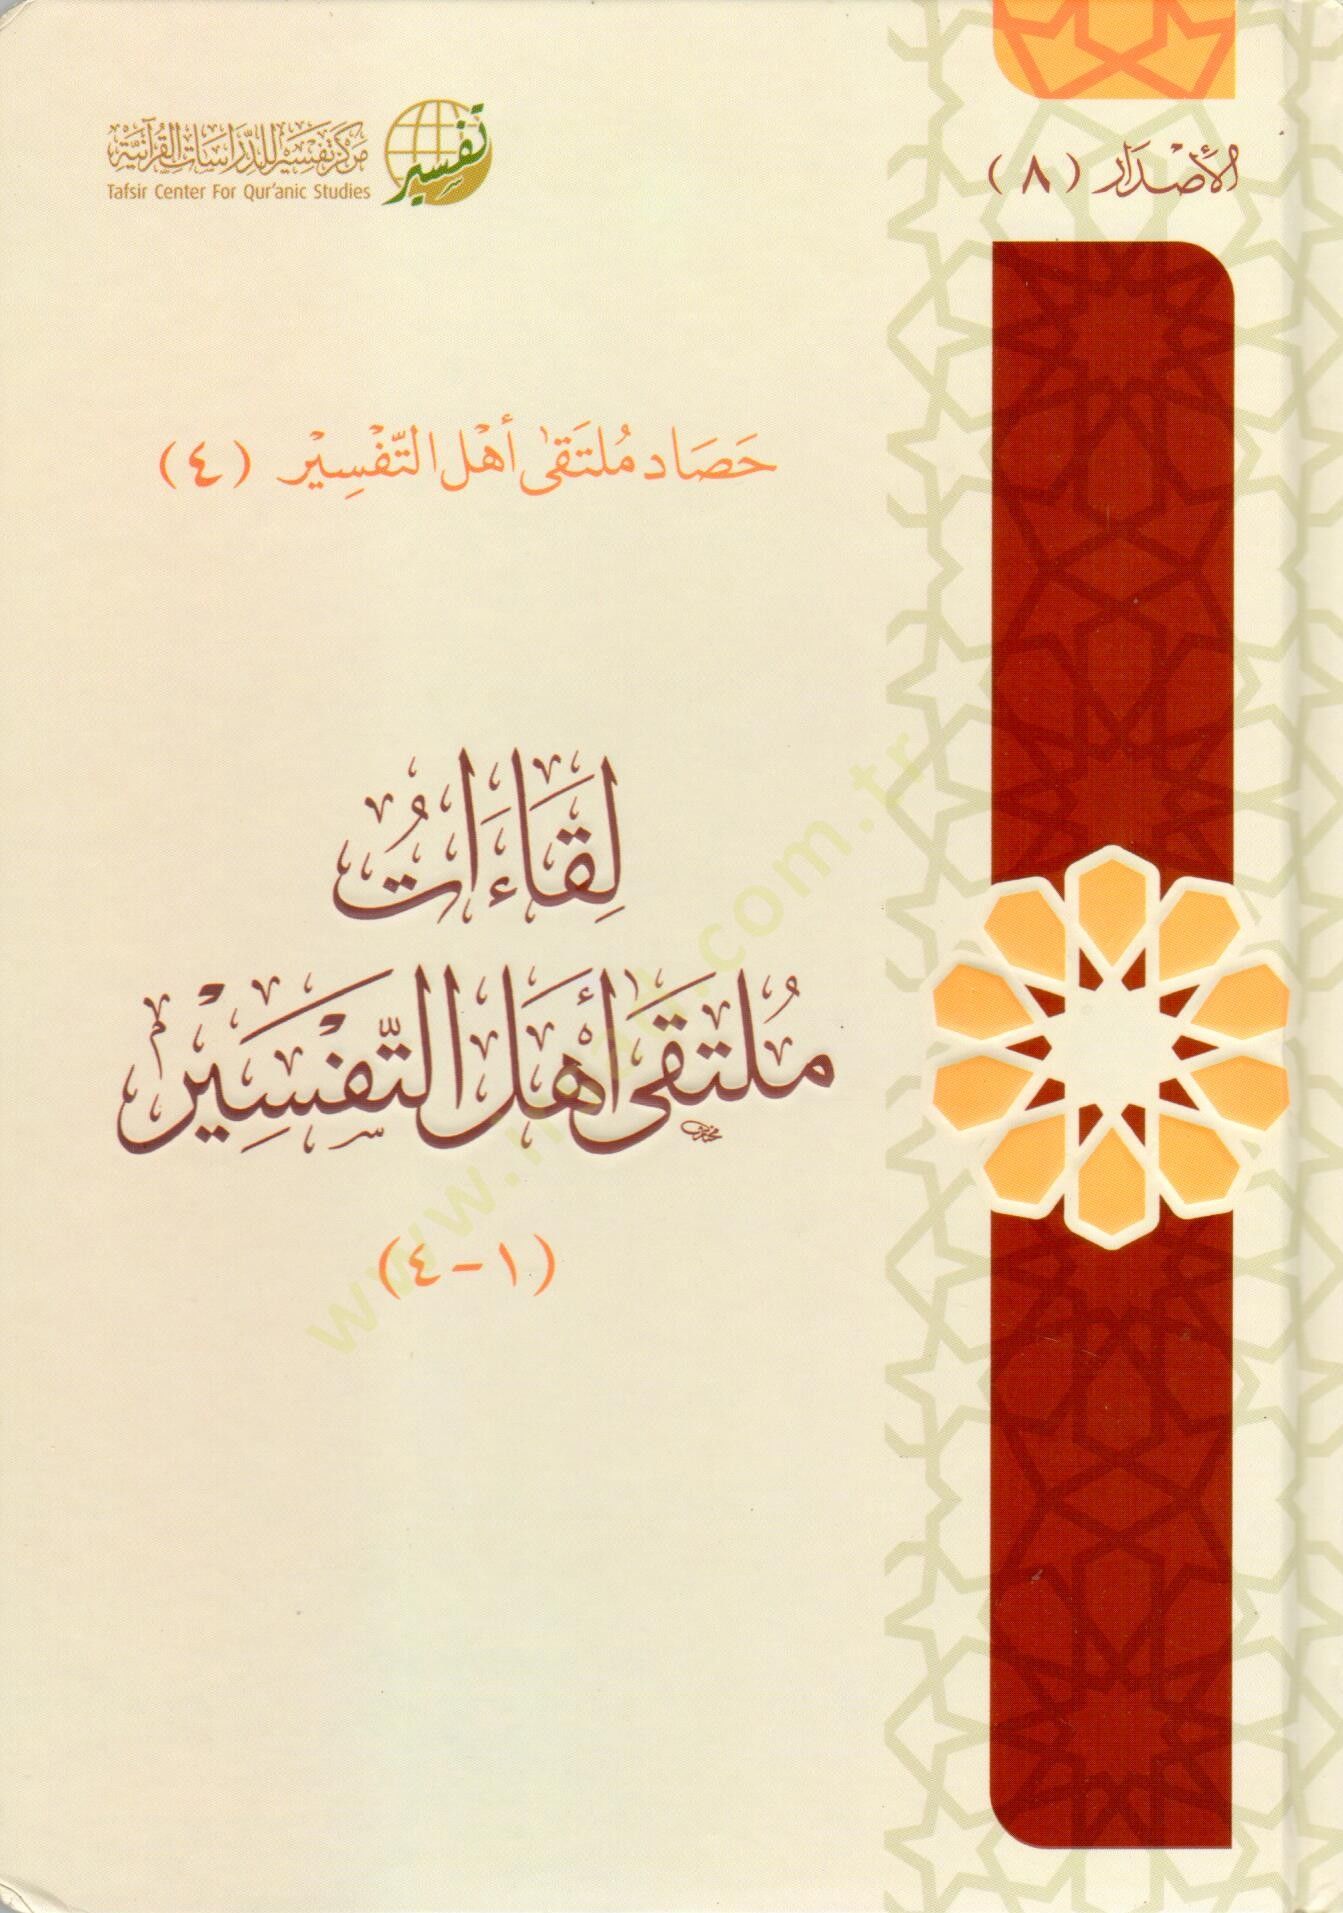 الأصدار (٨)
مركز تفسير للدراسات القرآنية
Tafsir Center For Qur'anic Studies
تفسير
حَصَاد مُلتَقىٰ أهْل التَّفْسِيْر (٤)
لِقَاءَاتُ
مُلتَقىٰ أهْل التَّفْسِيْر
(١-٤)